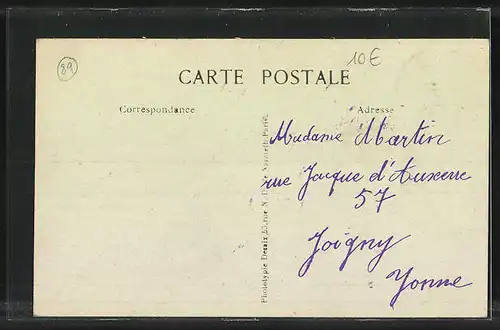 89
10€
CARTE POSTALE
Correspondance
Adresse
Madame Martin
rue Jacque d'Auxerre
57
Joigny
Yonne
Phototypie Desaix, rue N. D. de Nazareth Paris.